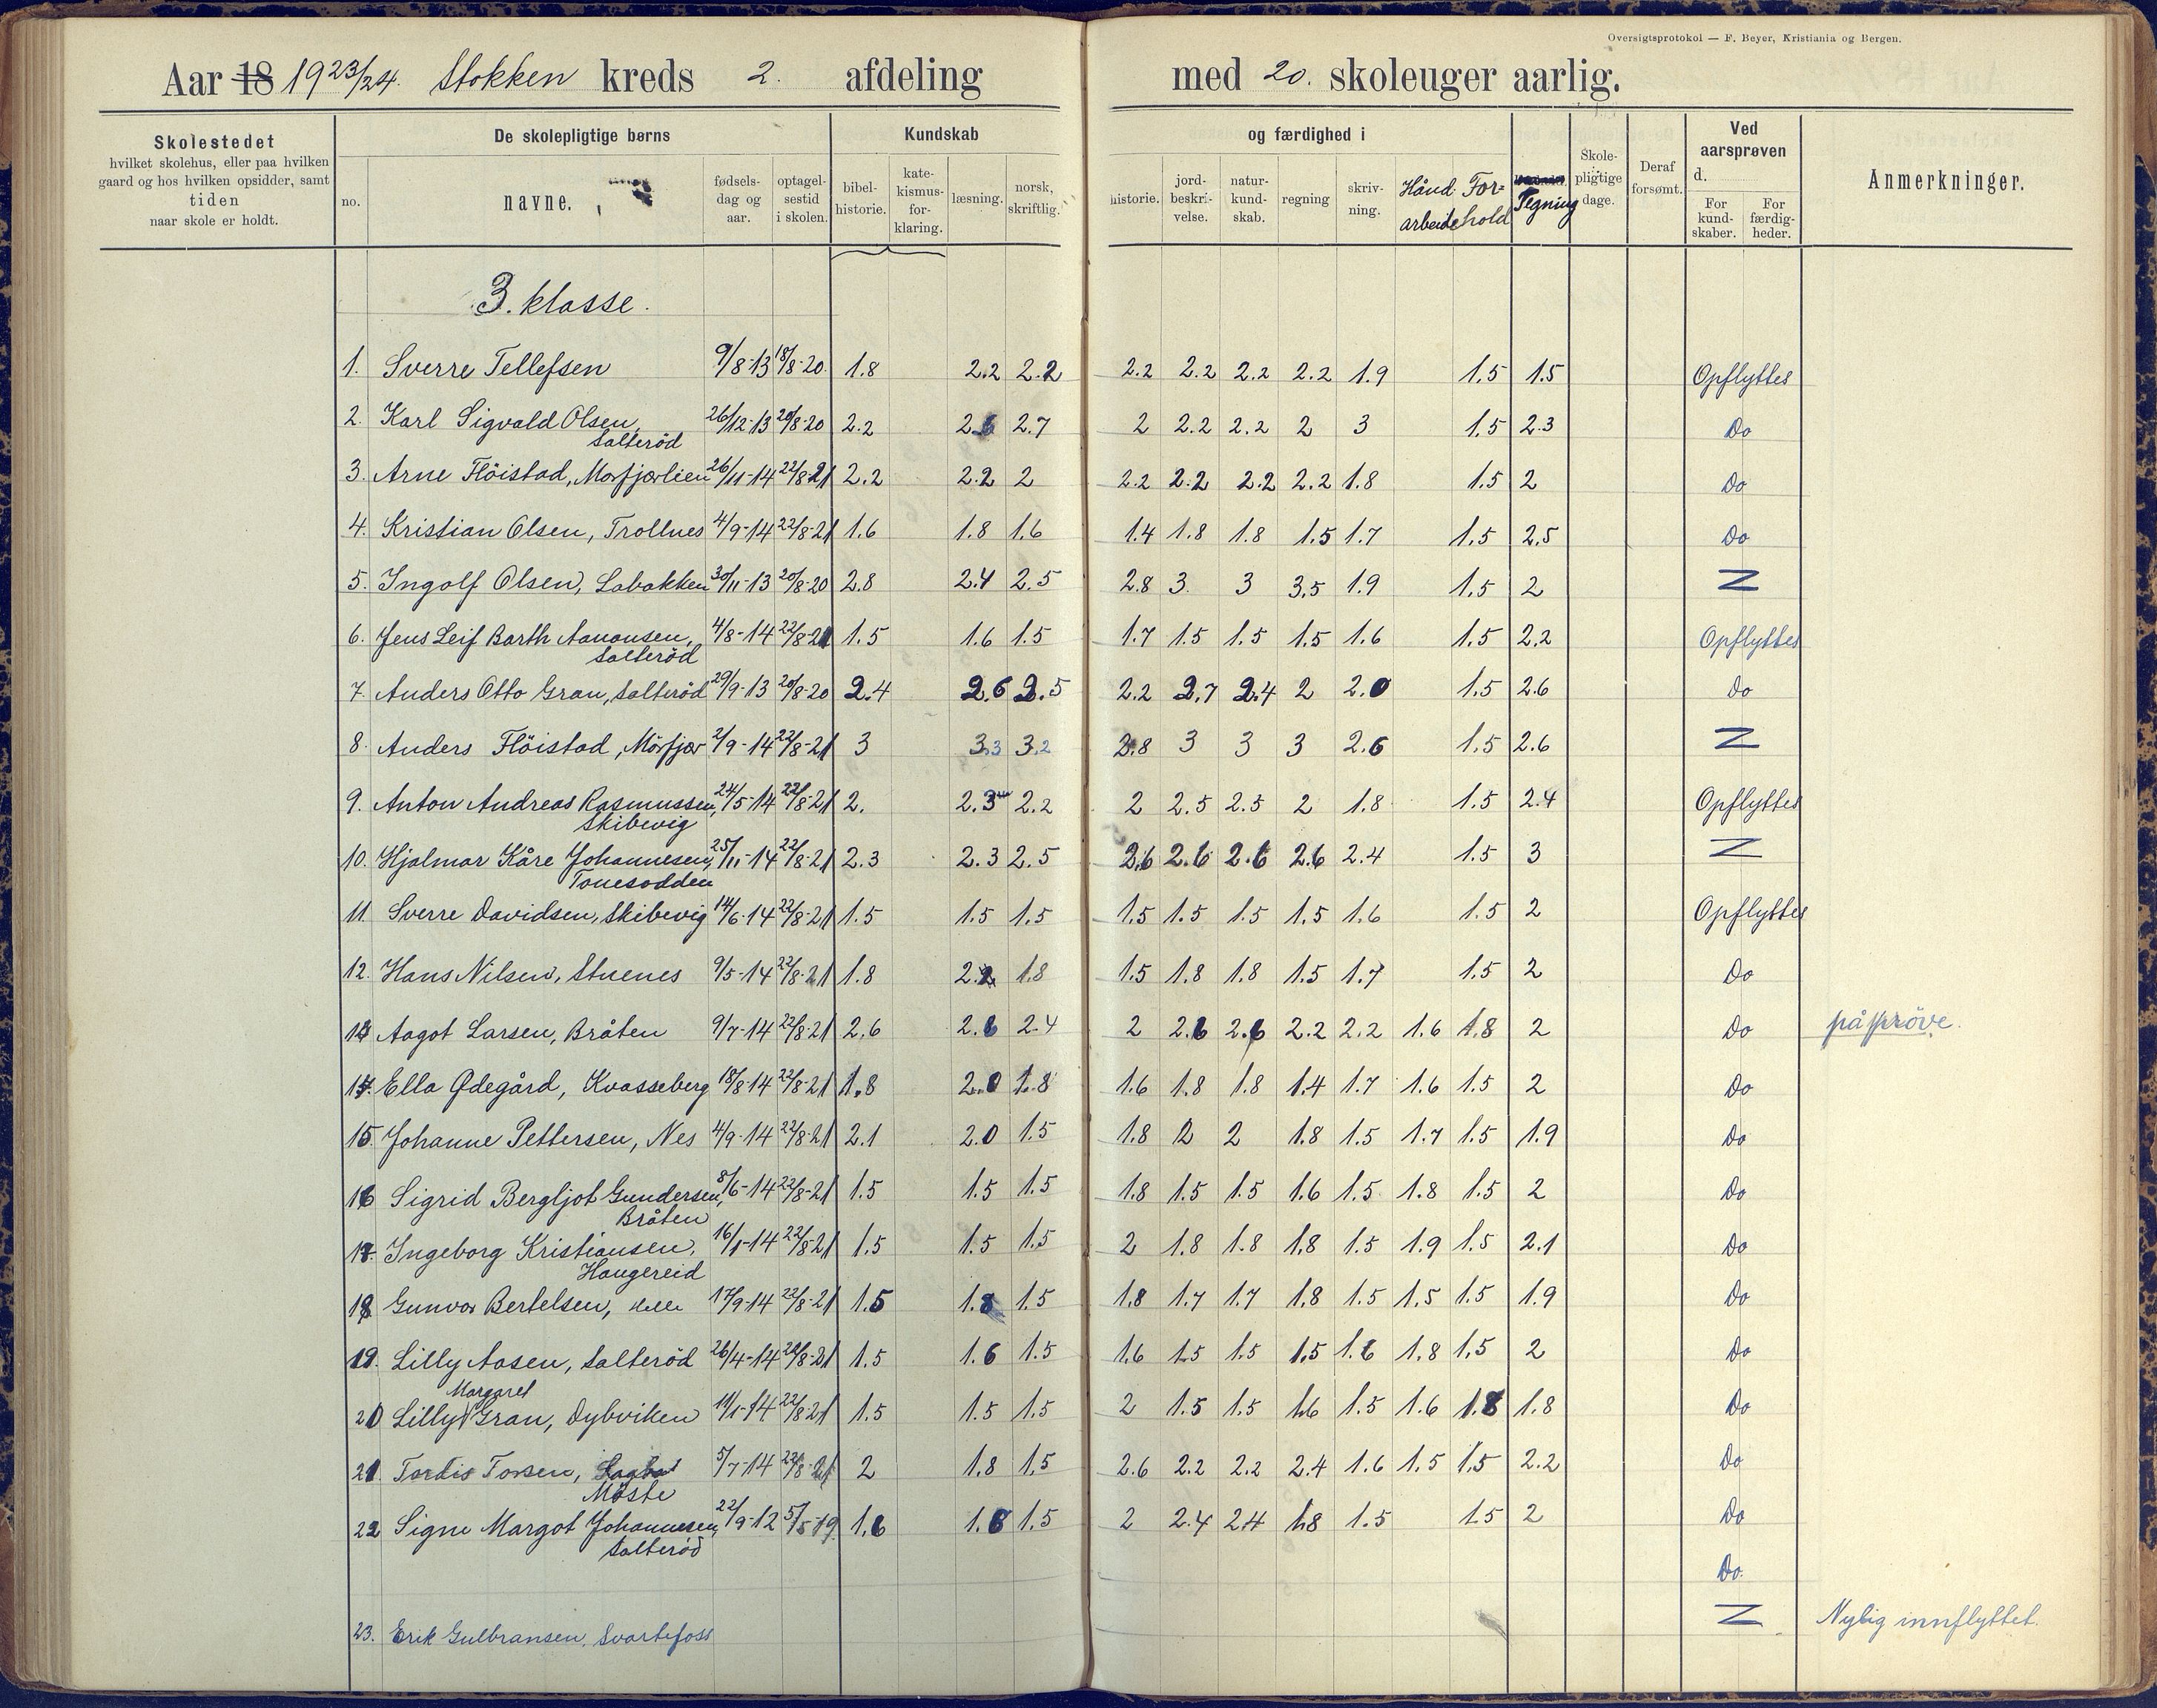 Oversigtsprotokol — F. Beyer, Kristiania og Bergen.
Aar 18 1923/24. Stokken kreds 2. afdeling med 20. skoleuger aarlig.
Skolestedet hvilket skolehus, eller paa hvilken gaard og hos hvilken opsidder, samt tiden naar skole er holdt.
De skolepligtige børns
no. navne. fødselsdag og aar. optagelsestid i skolen.
Kundskab og færdighed i
bibelhistorie. katekismusforklaring. læsning. norsk, skriftlig. historie. jordbeskrivelse. naturkundskab. regning skrivning. Håndarbeide Forhold Tegning
Skolepligtige dage. Deraf forsømt.
Ved aarsprøven d. For kundskaber. For færdigheder.
Anmerkninger.
3. klasse.
1. Sverre Tellefsen 9/8-13 18/8-20. 1.8 2.2 2.2 2.2 2.2 2.2 2.2 1.9 1.5 1.5 Opflyttes
2. Karl Sigvald Olsen, 26/12-13 20/8-20 2.2 2.6 2.7 2 2.2 2.2 2 3 1.5 2.3 Do
Salteröd
3. Arne Flöistad, Morfjærlien 26/11-14 22/8-21 2.2 2.2 2 2.2 2.2 2.2 2.2 1.8 1.5 2 Do
4. Kristian Olsen, Trollnes 4/9-14 22/8-21 1.6 1.8 1.6 1.4 1.8 1.8 1.5 1.7 1.5 2.5 Do
5. Ingolf Olsen, Labakken 30/11-13 20/8-20 2.8 2.4 2.5 2.8 3. 3 3.5 1.9 1.5 2 Z
6. Jens Leif Barth Aanonsen, 4/8-14 22/8-21 1.5 1.6 1.5 1.7 1.5 1.5 1.5 1.6 1.5 2.2 Opflyttes
Salteröd
7. Anders Otto Gran, Salteröd 29/9-13 20/8-20 2.4 2.6 2.5 2.2 2.7 2.4 2 2.0 1.5 2.6 Do
8. Anders Flöistad, Mörfjær 2/9-14 22/8-21 3 3.3 3.2 2.8 3 3 3 2.6 1.5 2.6 Z
9. Anton Andreas Rasmussen, 24/5-14 22/8-21 2. 2.3 2.2 2 2.5 2.5 2 1.8 1.5 2.4 Opflyttes
Skibevig
10. Hjalmar Kåre Johannesen, 25/11-14 22/8-21 2.3 2.3 2.5 2.6 2.6 2.6 2.6 2.4 1.5 3 Z
Tonesodden
11. Sverre Davidsen, Skibevig 14/6-14 22/8-21 1.5 1.5 1.5 1.5 1.5 1.5 1.5 1.6 1.5 2 Opflyttes
12. Hans Nilsen, Stuenes 9/5-14 22/8-21 1.8 2.2 1.8 1.5 1.8 1.8 1.5 1.7 1.5 2 Do
13 Aagot Larsen, Bråten 9/7-14 22/8-21 2.6 2.6 2.4 2 2.6 2.6 2.2 2.2 1.6 1.8 2 Do på pröve.
14. Ella Ødegård, Kvasseberg 18/8-14 22/8-21 1.8 2.0 1.8 1.6 1.8 1.8 1.4 1.7 1.6 1.5 2 Do
15. Johanne Pettersen, Nes 4/9-14 22/8-21 2.1 2.0 1.5 1.8 2 2 1.8 1.5 1.7 1.5 1.9 Do
16 Sigrid Bergljot Gundersen, 8/6-14 22/8-21 1.5 1.5 1.5 1.8 1.5 1.5 1.6 1.5 1.8 1.5 2 Do
Bråten
17. Ingeborg Kristiansen, 16/1-14 22/8-21 1.5 1.5 1.5 2 1.8 1.8 1.8 1.5 1.9 1.5 2.1 Do
Haugereid
18 Gunvor Bertelsen, 17/9-14 22/8-21 1.5 1.8 1.5 1.8 1.7 1.7 1.8 1.5 1.5 1.5 1.9 Do
19. Lilly Aasen, Salteröd 26/4-14 22/8-21 1.5 1.6 1.5 1.6 1.5 1.5 1.5 1.6 1.8 1.5 2 Do
Margaret
20 Lilly Gran, Dybviken 11/1-14 22/8-21 1.5 1.5 1.5 2 1.5 1.5 1.6 1.5 1.6 1.8 1.8 Do
21. Tordis Torsen, 5/7-14 22/8-21 2 1.8 1.5 2.6 2.2 2.2 2.4 1.6 1.5 1.5 2.2 Do
22 Signe Margot Johannesen, 22/9-12 5/5-19. 1.6 1.6 1.5 2 2.4 2.4 1.8 1.5 1.5 2 Do
Salteröd
Do.
23. Erik Gulbransen, Svartefoss Z Nylig innflyttet.